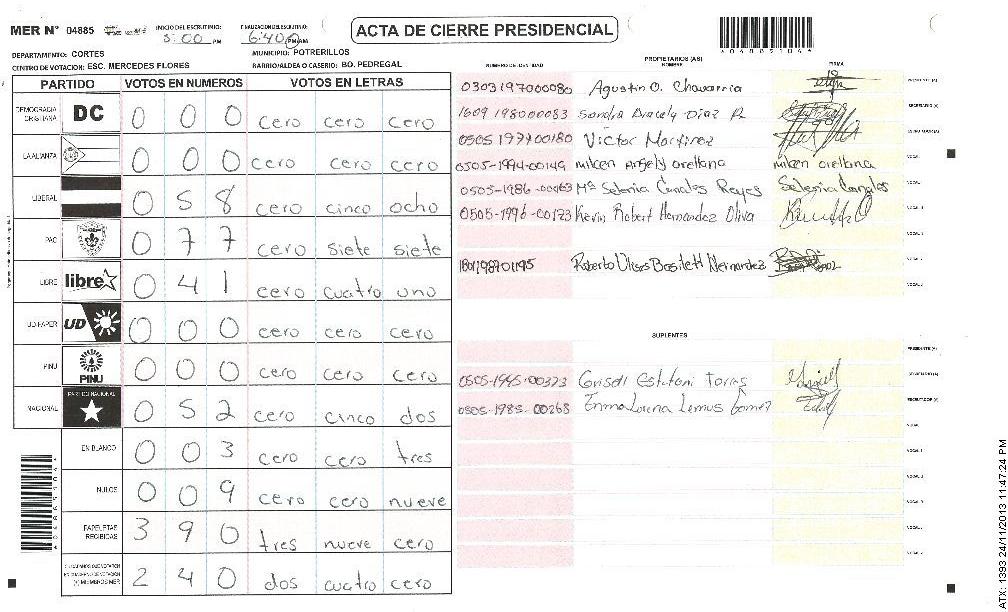 MER N° 04885 INICIO DEL ESCRUTINIO: 5:00 PM FINALIZACION DEL ESCRUTINIO: 6:40 PM/AM
ACTA DE CIERRE PRESIDENCIAL
DEPARTAMENTO: CORTES MUNICIPIO: POTRERILLOS
CENTRO DE VOTACION: ESC. MERCEDES FLORES BARRIO/ALDEA O CASERIO: BO. PEDREGAL
PARTIDO VOTOS EN NUMEROS VOTOS EN LETRAS
DEMOCRACIA CRISTIANA DC 0 0 0 cero cero cero
LA ALIANZA 0 0 0 cero cero cero
LIBERAL 0 5 8 cero cinco ocho
PAC 0 7 7 cero siete siete
LIBRE libre 0 4 1 cero cuatro uno
UD-FAPER UD 0 0 0 cero cero cero
PINU PINU 0 0 0 cero cero cero
NACIONAL PARTIDO NACIONAL 0 5 2 cero cinco dos
EN BLANCO 0 0 3 cero cero tres
NULOS 0 0 9 cero cero nueve
PAPELETAS RECIBIDAS 3 9 0 tres nueve cero
2 4 0 dos cuatro cero
PROPIETARIOS (AS)
NUMERO DE IDENTIDAD NOMBRE FIRMA
0303197000080 Agustin O. Chavarria PRESIDENTE (A)
1609 198000083 Sandra Aracely Diaz R SECRETARIO (A)
0505 199700180 Victor Martinez ESCRUTADOR (A)
0505-1994-00149 milcen Arsely orellana milcen orellana
0505-1986-00063 Mª Selenia Canales Reyes Selenia Canales
0505-1996-00123 Kevin Robert Hernandez Oliva
1801198701195 Roberto Ulises Hernandez
SUPLENTES
PRESIDENTE (A)
0505-1995-00323 Estefani Torres SECRETARIO (A)
0505-1985-00268 Enma Lorena Lemus Gomez ESCRUTADOR (A)
ATX: 1393 24/11/2013 11:47:24 PM